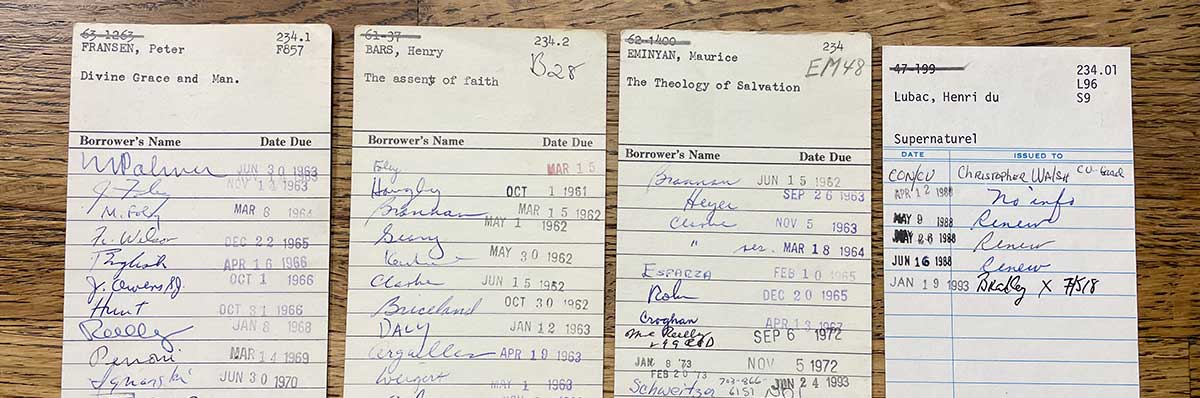 63-1263
234.1
FRANSEN, Peter
F857
Divine Grace and Man.
Borrower's Name Date Due
Palmer JUN 30 1963
NOV 14 1963
M. Foley MAR 8 1964
Fr. Wilson DEC 22 1965
English APR 16 1966
J. Owens SJ. OCT 1 1966
Hunt OCT 31 1966
Reilly JAN 8 1968
MAR 14 1969
JUN 30 1970
61-37
234.2
BARS, Henry
B28
The assent of faith
Borrower's Name Date Due
MAR 15
OCT 1 1961
MAR 15 1962
MAY 1 1962
MAY 30 1962
Clarke JUN 15 1962
Briceland OCT 30 1962
DALY JAN 12 1963
Arguelles APR 19 1963
MAY 1 1963
62-1400
234
EMINYAN, Maurice
EM48
The Theology of Salvation
Borrower's Name Date Due
Brannan JUN 15 1962
Heyer SEP 26 1963
Clarke NOV 5 1963
" MAR 18 1964
ESPARZA FEB 10 1965
DEC 20 1965
Croghan APR 13 1967
Mc Reilly SEP 6 1972
JAN 8 '73 NOV 5 1972
FEB 20 '73
Schweitzer 703-866-6151 JUN 24 1993
47-199
234.01
L96
Lubac, Henri du S9
Supernaturel
DATE ISSUED TO
CON/CU CHRISTOPHER WALSH CU-Grad
APR 12 1988 No info
MAY 9 1988 Renew
MAY 26 1988 Renew
JUN 16 1988 Renew
JAN 19 1993 Bradley X 7518